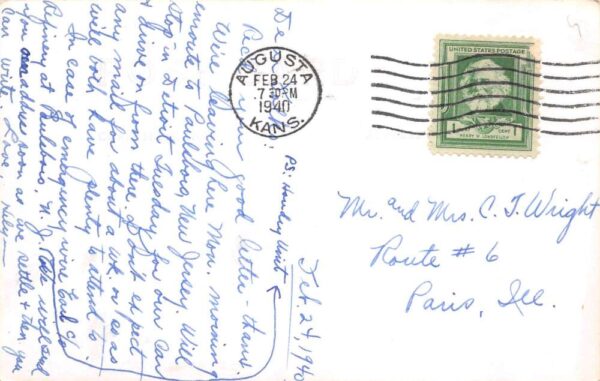 Dear
Rec'd your good letter - thanx.
We're leaving here Mon. morning
enroute to Paulsboro, New Jersey. Will
stop in Detroit Tuesday for our car
& drive on from there. Don't expect
any mail for about a wk. or so as
will both have plenty to attend to.
In case of emergency wire Earl c/o
Refinery at Paulsboro, N. J.
you address soon as we settle & then you
can write. Love,
P.S.
Feb 24, 1940
AUGUSTA
FEB 24
7 30 PM
1940
KANS.
UNITED STATES POSTAGE
1 CENT 1
HENRY W. LONGFELLOW
Mr. and Mrs. C. T. Wright
Route # 6
Paris, Ill.